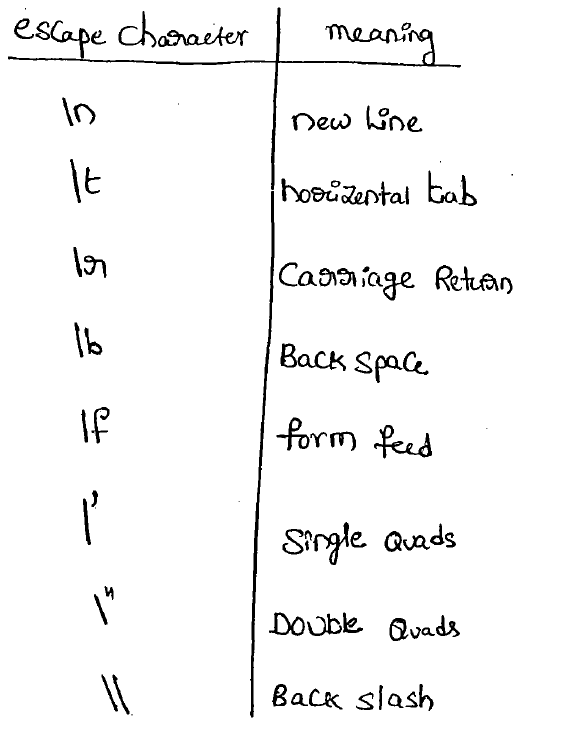 escape character meaning
\n new line
\t horizental tab
\r Carriage Return
\b Back space
\f form feed
\' Single Quads
\" Double Quads
\\ Back slash